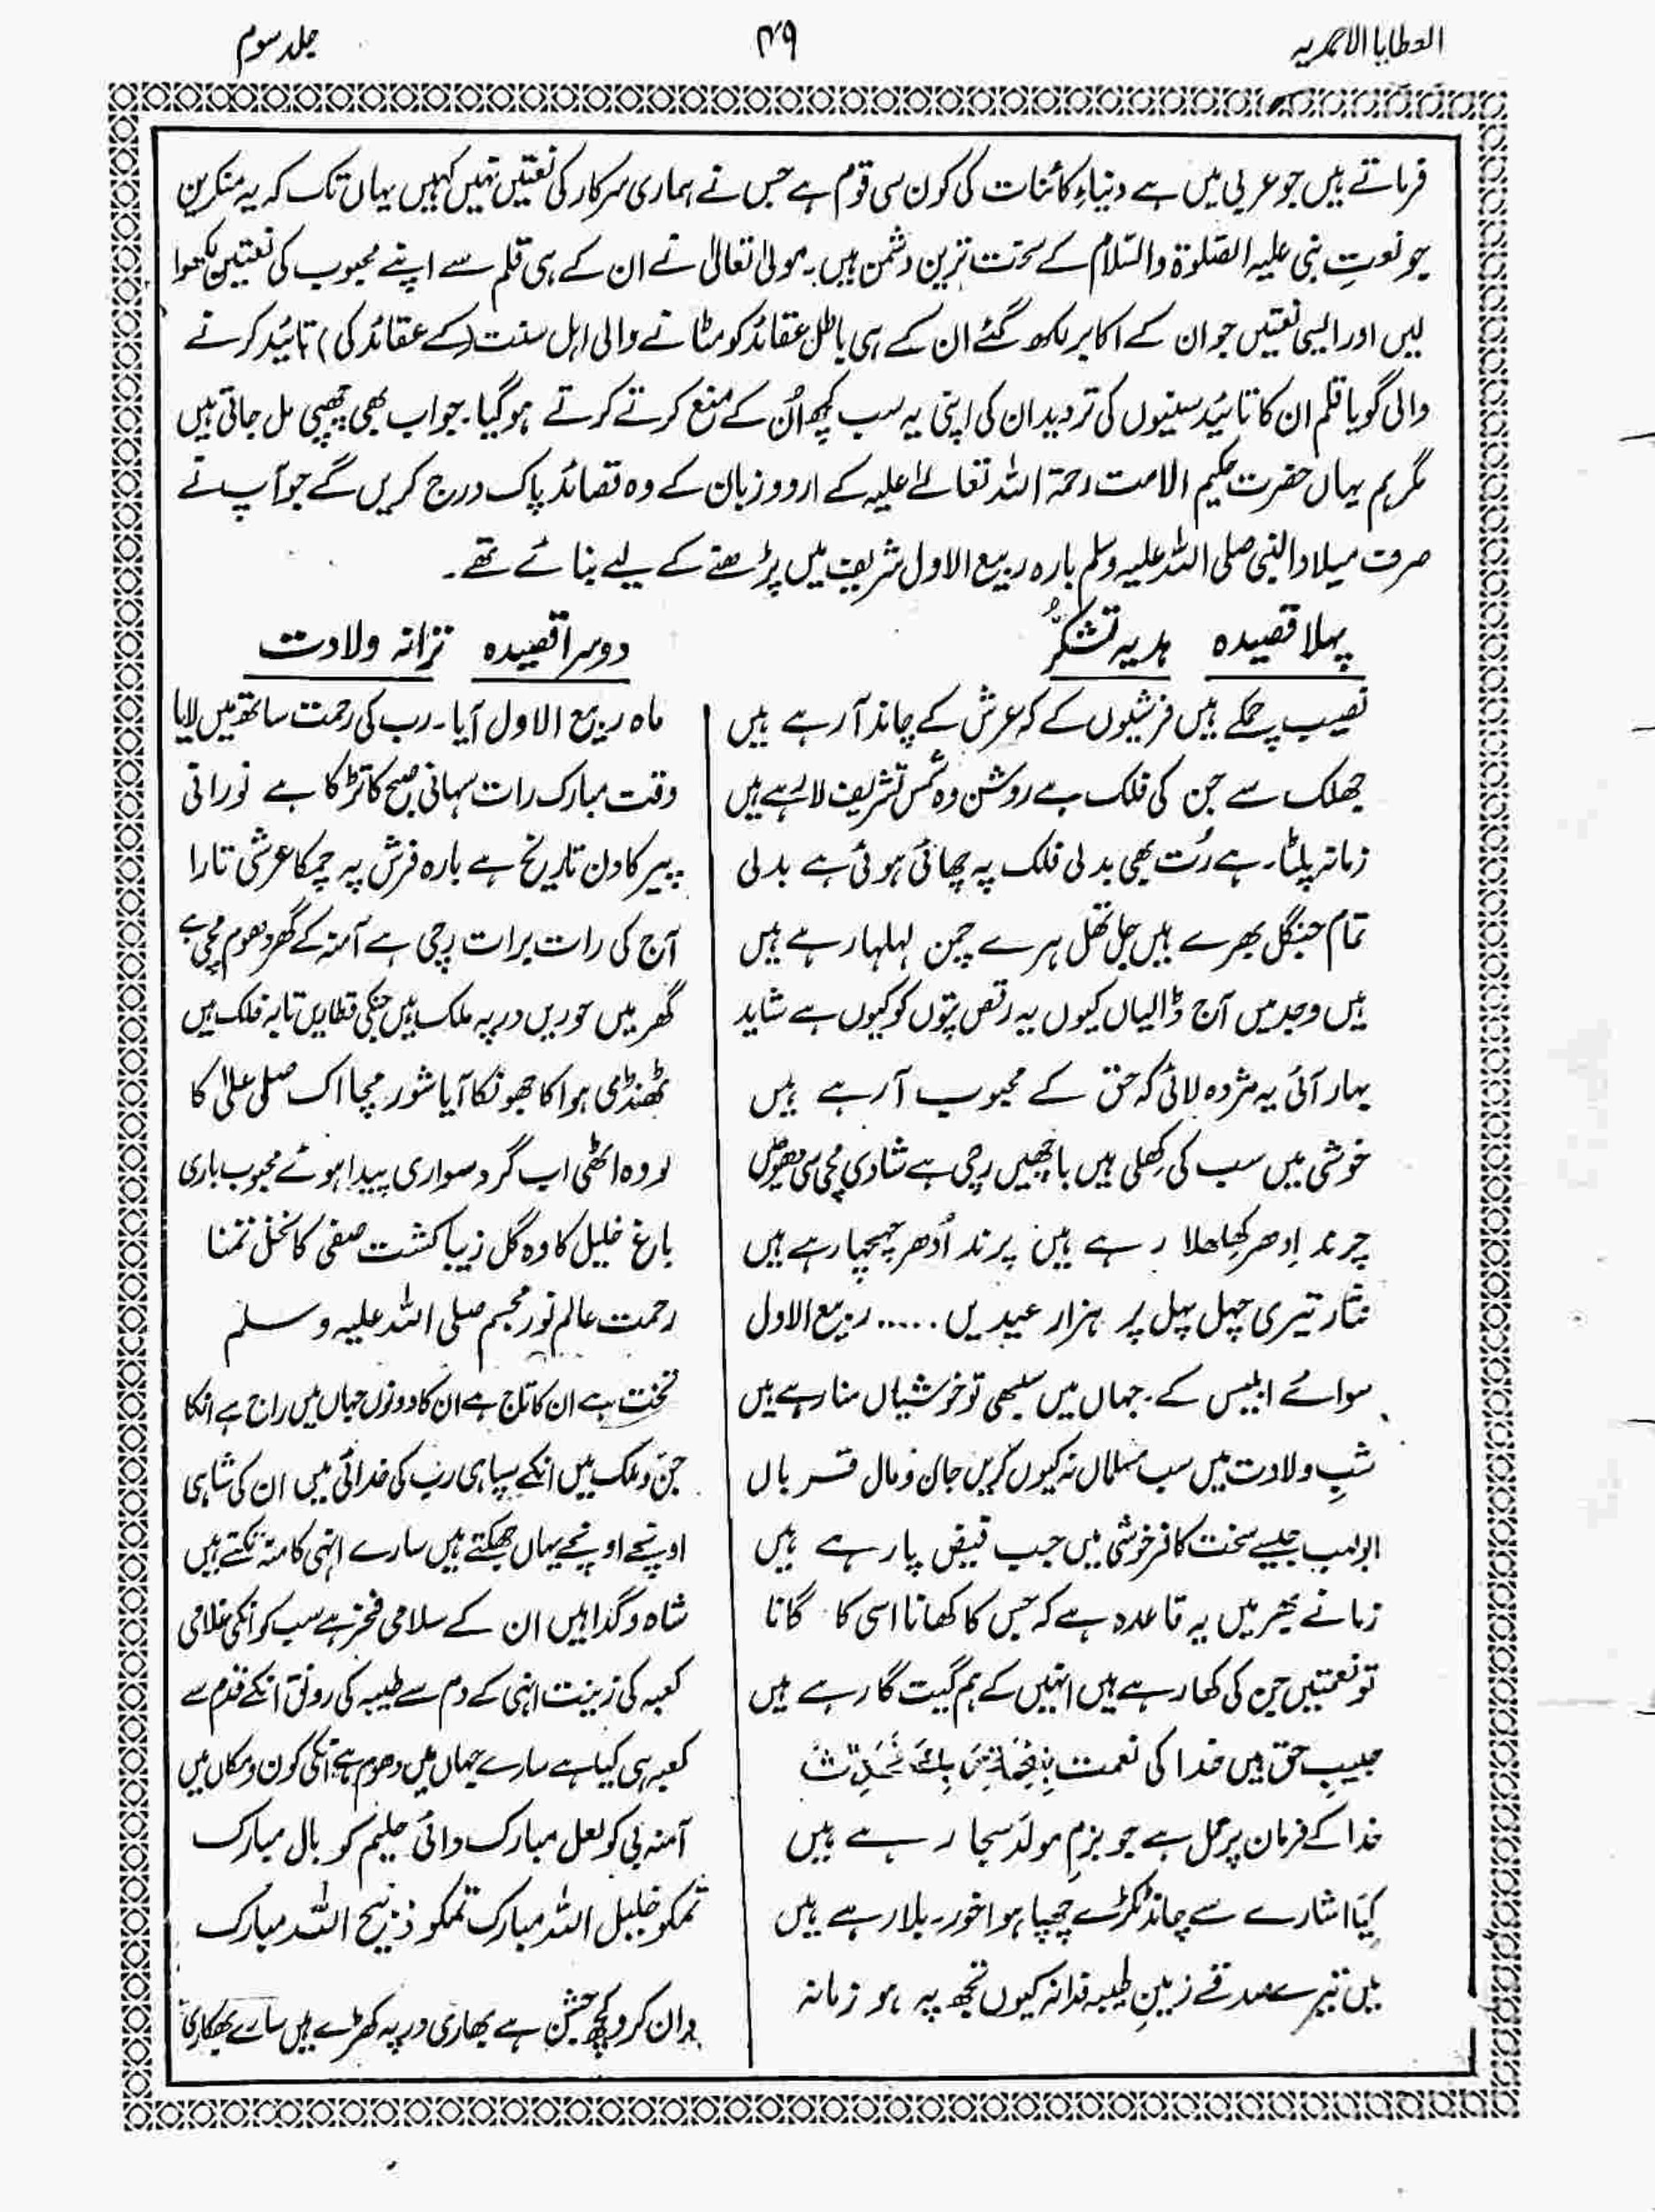 العطایا الاحمدیہ
۴۹
جلد سوم
فرماتے ہیں جو عربی میں ہے دنیاءِ کائنات کی کون سی قوم ہے جس نے ہماری سرکار کی نعتیں نہیں کہیں یہاں تک کہ یہ منکرین
جو نعتِ نبی علیہ الصّلوۃ والسّلام کے سخت ترین دشمن ہیں۔ مولیٰ تعالیٰ نے ان کے ہی قلم سے اپنے محبوب کی نعتیں لکھوا
لیں اور ایسی نعتیں جو ان کے اکابر لکھ گئے ان کے ہی باطل عقائد کو مٹانے والی اہل سنت (کے عقائد کی) تائید کرنے
والی گویا قلم ان کا تائید سنیوں کی تردید ان کی اپنی یہ سب کچھ اُن کے منع کرتے کرتے ہو گیا۔ جو اب بھی چھپی مل جاتی ہیں
مگر ہم یہاں حضرت حکیم الامت رحمۃ اللہ تعالےٰ علیہ کے اردو زبان کے وہ قصائد پاک درج کریں گے جو آپ نے
صرف میلاد النبی صلی اللہ علیہ وسلم بارہ ربیع الاول شریف میں پڑھنے کے لیے بنائے تھے۔
پہلا قصیدہ ہدیہ تشکُّر
نصیب چمکے ہیں فرشیوں کے کہ عرش کے چاند آرہے ہیں
جھلک سے جن کی فلک ہے روشن وہ شمس تشریف لا رہے ہیں
زمانہ پلٹا۔ ہے رُت بھی بدلی فلک پہ چھائی ہوئی ہے بدلی
تمام جنگل بھرے ہیں جل تھل ہرے چمن لہلہا رہے ہیں
ہیں وجد میں آج ڈالیاں کیوں یہ رقص پتوں کو کیوں ہے شاید
بہار آئی یہ مژدہ لائی کہ حق کے محبوب آرہے ہیں
خوشی میں سب کی کِھلی ہیں باچھیں رچی ہے شادی مچی ہی دھومیں
چرند اِدھر کھلھلا رہے ہیں پرند اُدھر چہچہا رہے ہیں
نثار تیری چہل پہل پر ہزار عیدیں ..... ربیع الاول
سوائے ابلیس کے۔ جہاں میں سبھی تو خوشیاں منا رہے ہیں
شبِ ولادت میں سب مسلماں نہ کیوں کریں جان و مال قرباں
ابولہب جیسے سخت کافر خوشی میں جب فیض پا رہے ہیں
زمانے بھر میں یہ قاعدہ ہے کہ جس کا کھانا اسی کا گانا
تو نعمتیں جن کی کھا رہے ہیں انہیں کے ہم گیت گا رہے ہیں
حبیبِ حق ہیں خدا کی نعمت بِنِعْمَۃِ رَبِّكَ فَحَدِّثْ
خدا کے فرمان پر عمل ہے جو بزمِ مولد سجا رہے ہیں
کِیَا اشارے سے چاند ٹکڑے چھپا ہوا خور۔ بلا رہے ہیں
میں تیرے صدقے زمینِ طیبہ فدا نہ کیوں تجھ پہ ہو زمانہ
دوسرا قصیدہ ترانہ ولادت
ماہ ربیع الاول آیا۔ رب کی رحمت ساتھ میں لایا
وقت مبارک رات سہانی صبح کا تڑکا ہے نورانی
پیر کا دن تاریخ ہے بارہ فرش پہ چمکا عرشی تارا
آج کی رات برات رچی ہے آمنہ کے گھر دھوم مچی ہے
گھر میں حوریں در پہ ملک ہیں جنکی قطاریں تا بہ فلک ہیں
ٹھنڈی ہوا کا جھونکا آیا شور مچا اک صلی علیٰ کا
لو وہ اٹھی اب گرد سواری پیدا ہوئے محبوب باری
باغ خلیل کا وہ گل زیبا کشت صفی کا نخل تمنا
رحمت عالم نور مجسم صلی اللہ علیہ وسلم
تخت ہے ان کا تاج ہے ان کا دونوں جہاں میں راج ہے انکا
جن و ملک ہیں انکے سپاہی رب کی خدائی میں ان کی شاہی
اونچے اونچے یہاں جھکتے ہیں سارے انہی کا منہ تکتے ہیں
شاہ و گدا ہیں ان کے سلامی فخر ہے سب کو انکی غلامی
کعبہ کی زینت انہی کے دم سے طیبہ کی رونق انکے قدم سے
کعبہ ہی کیا ہے سارے جہاں میں دھوم ہے انکی کون و مکاں میں
آمنہ بی کو لعل مبارک دائی حلیم کو بال مبارک
تمکو خلیل اللہ مبارک تمکو ذبیح اللہ مبارک
دان کرو کچھ جشن ہے بھاری در پہ کھڑے ہیں سارے بھکاری